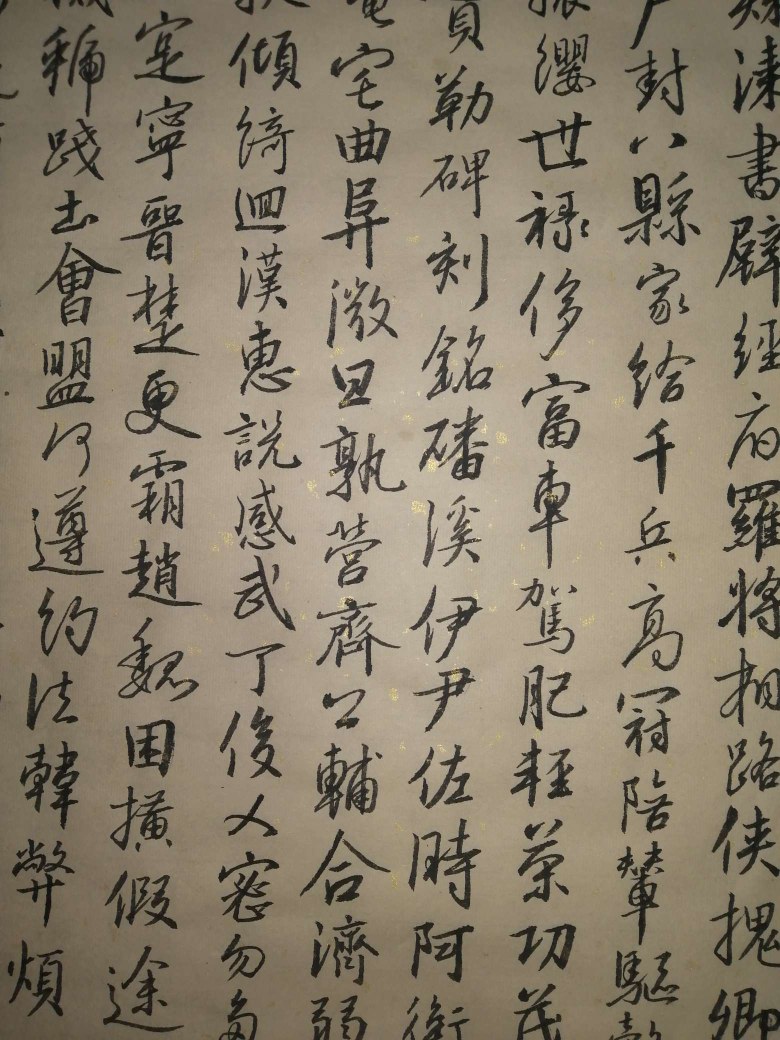 漆書壁經府羅將相路俠槐卿
封八縣家給千兵高冠陪輦驅轂
纓世祿侈富車駕肥輕策功茂
勒碑刻銘磻溪伊尹佐時阿衡
宅曲阜微旦孰營齊公輔合濟弱
傾綺迴漢惠說感武丁俊乂密勿多
寔寧晉楚更霸趙魏困橫假途
踐土會盟何遵約法韓弊煩